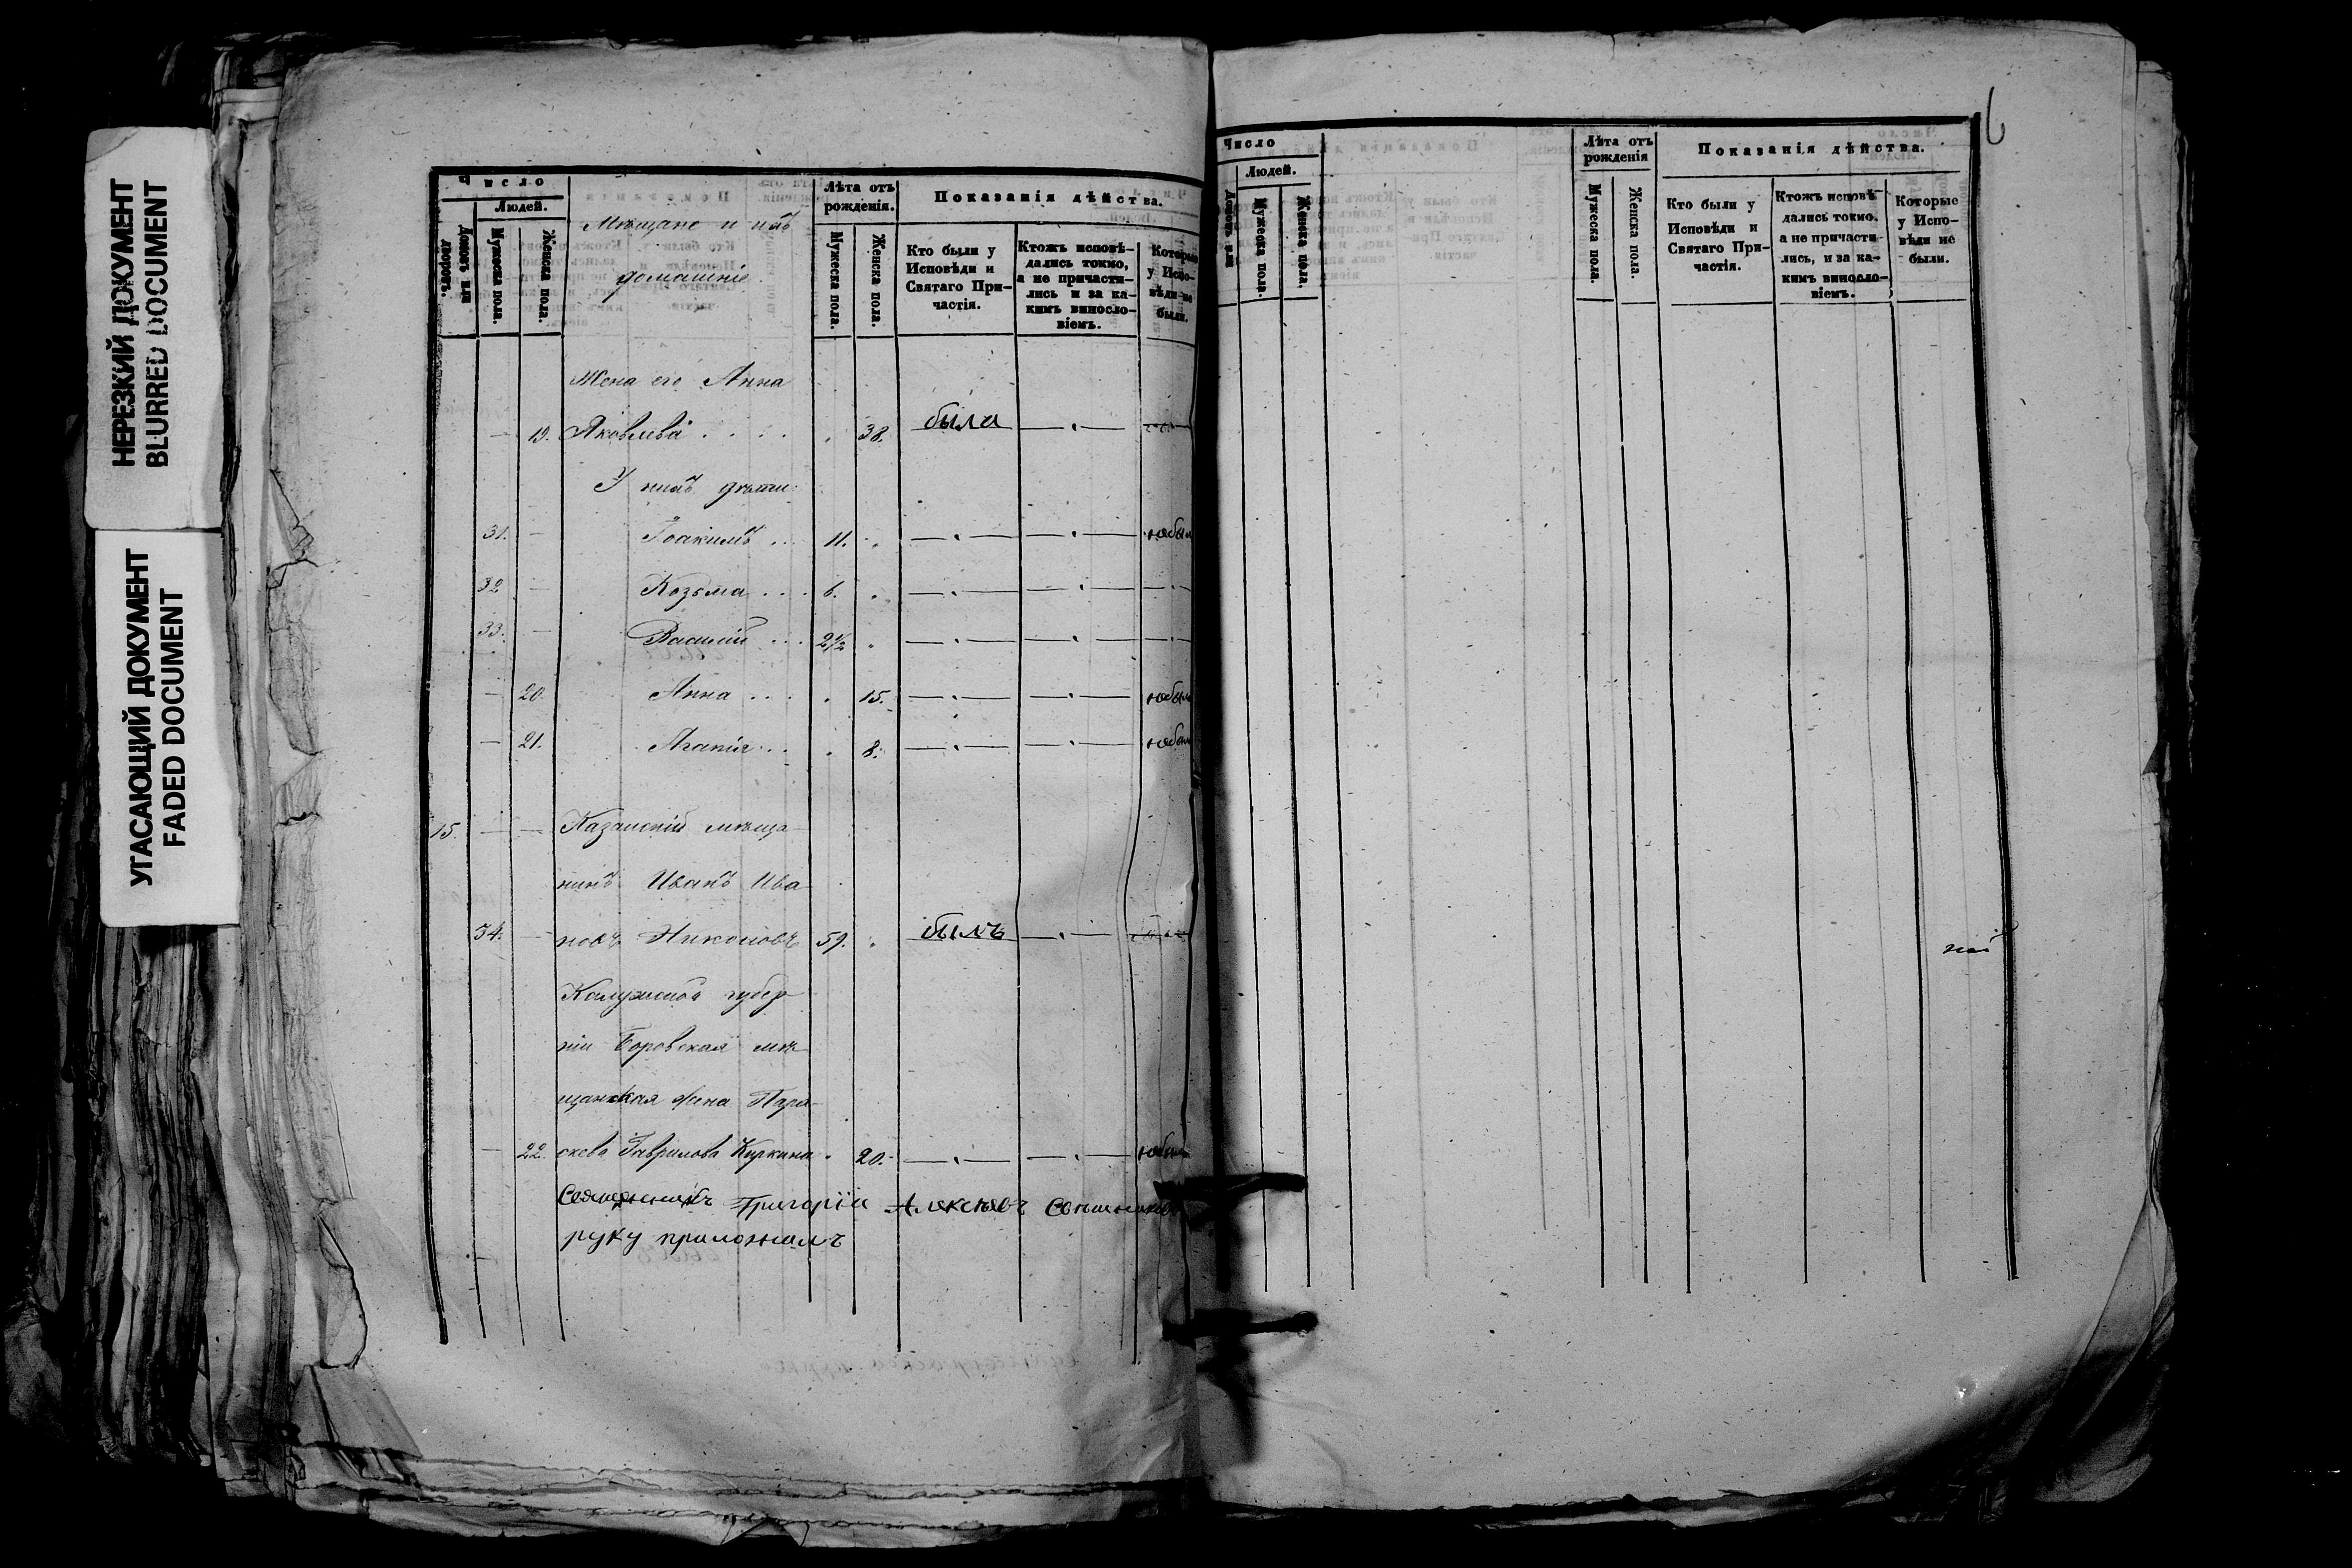 НЕРЕЗКИЙ ДОКУМЕНТ
BLURRED DOCUMENT
УГАСАЮЩИЙ ДОКУМЕНТ
FADED DOCUMENT
Число
Людей.
Домовъ или дворовъ.
Мужеска пола.
Женска пола.
Мѣщане и ихъ
домашніе.
Лѣта отъ рожденія.
Мужеска пола.
Женска пола.
Показанія дѣйства.
Кто были у Исповѣди и Святаго При-
частія.
Ктожъ исповѣ-
дались токмо,
а не причасти-
лись и за ка-
кимъ винosло-
віемъ.
Которые
у Испо-
вѣди не
были.
Жена его Анна
19. Яковлева . . . . 38. была
У нихъ дѣти:
31. Іоакимъ . . 11.
32 Козьма . . . 6.
33. Василій . . . 2½
20. Анна . . . 15.
21. Агапія . . 8.
15. Казанскій мѣща-
нинъ Иванъ Ива-
34. новъ Никоновъ 59. былъ
Калужской губер-
ніи Боровская мѣ-
щанская жена Пара-
22. скева Гаврилова Киркина 20.
Священникъ Григорій Алексѣевъ
руку приложилъ
6
Число
Людей.
Домовъ или
Мужеска пола.
Женска пола.
Лѣта отъ
рожденія
Мужеска пола.
Женска пола.
Показанія дѣйства.
Кто были у
Исповѣди и
Святаго При-
частія.
Ктожъ исповѣ-
дались токмо,
а не причасти-
лись, и за ка-
кимъ винosло-
віемъ.
Которые
у Испо-
вѣди не
были.